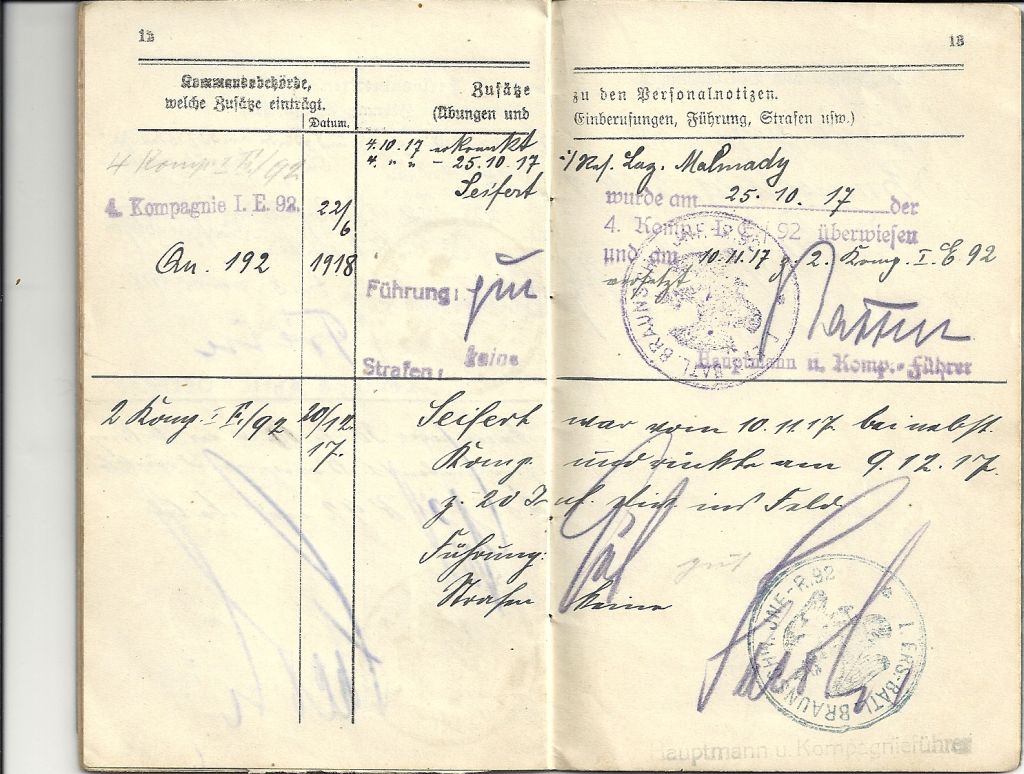 12
Kommandobehörde,
welche Zusätze einträgt.
Datum.
Zusätze
(Übungen und
4 Komp. I E/92
4. Kompagnie I. E. 92.
22/6
An. 192 1918
4.10.17 erkrankt
4. " " - 25.10.17
Seifert
Führung: gut
Strafen: keine
2 Komp. I E./92 20/12.
17.
Seifert
Komp.
z. 20
Führung:
Strafen
13
zu den Personalnotizen.
Einberufungen, Führung, Strafen usw.)
i/Res. Laz. Malmady
wurde am 25. 10. 17 der
4. Komp. I. E. 92 überwiesen
und am 10.11.17 z. 2. Komp. I. E 92
versetzt
Hauptmann u. Komp.-Führer
I. ERS. BATL. BRAUNSCHW. INF.-R. 92
war vom 10.11.17. bei nebst.
und rückte am 9.12.17.
ins Feld
gut
keine
I. ERS. BATL. BRAUNSCHW. INF.-R. 92
Hauptmann u. Kompagnieführer